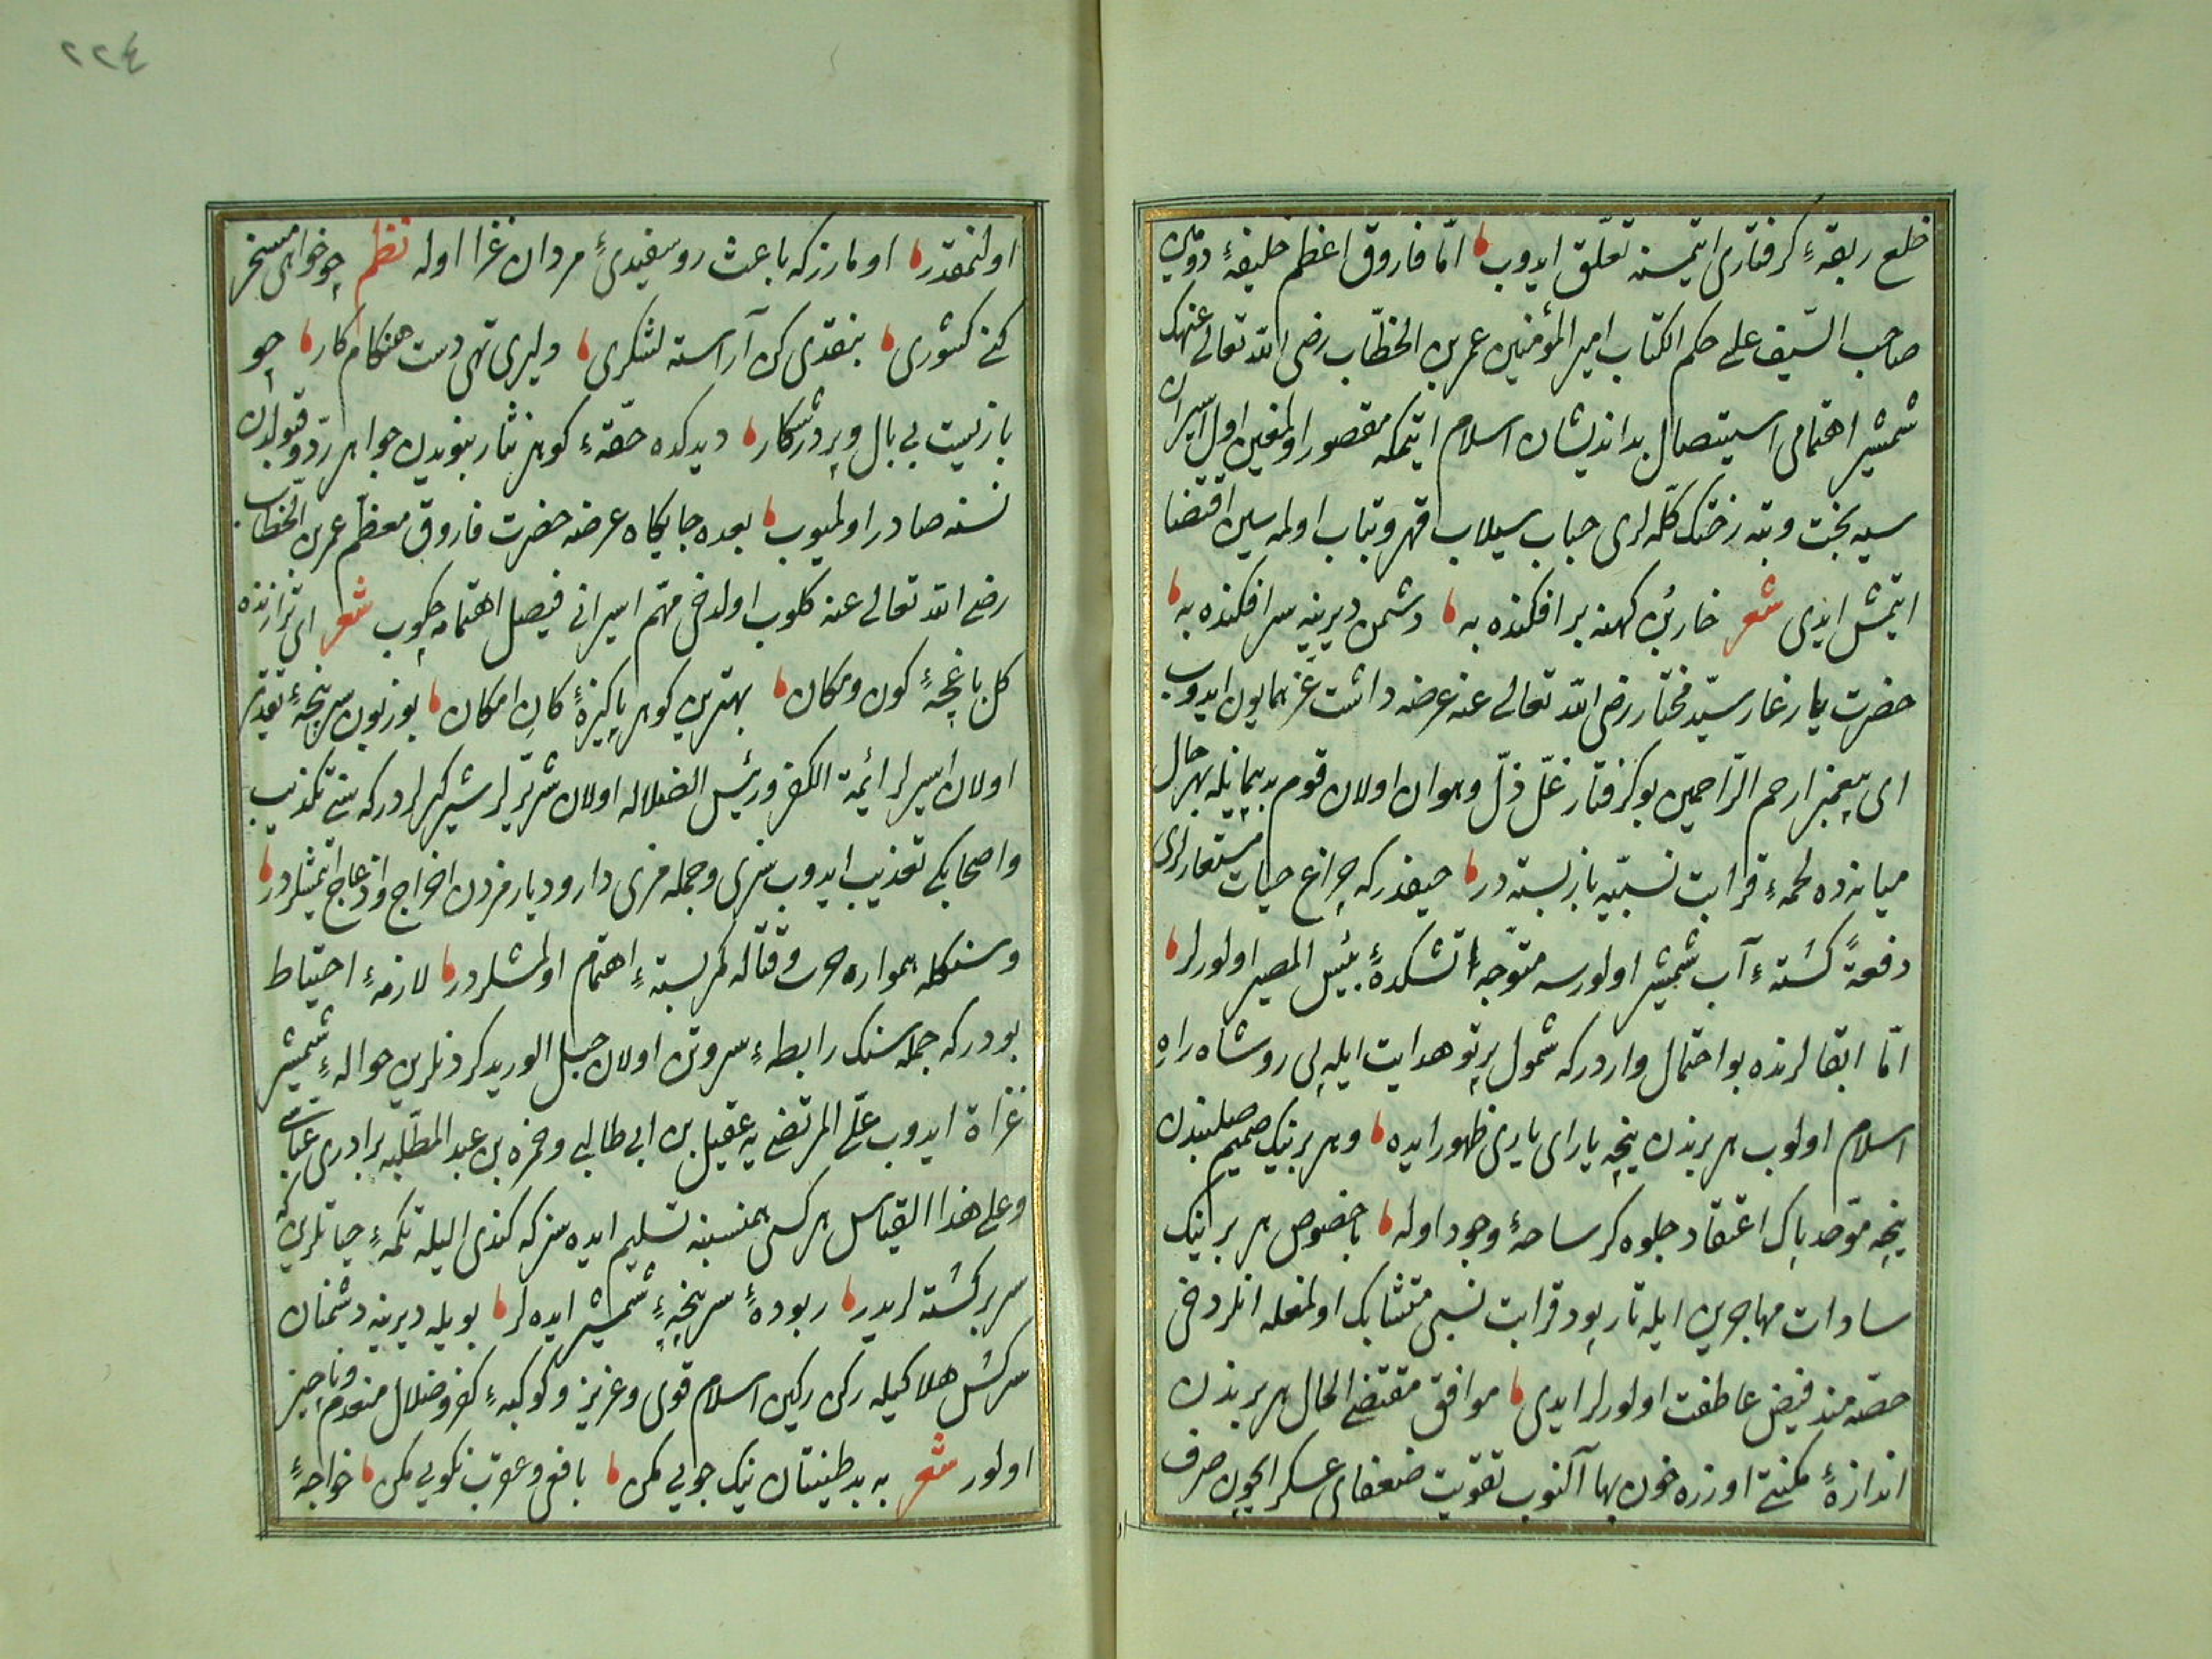 خلع ربقهٔ كرفتاری ایتمسنه تعلّق ایدوب امّا فاروق اعظم خلیفهٔ دومین
صاحب السّیف علی حكم الكتاب امیر المؤمنین عمر بن الخطّاب رضی الله تعالی عنهك
شمشیر اهتمامی استیصال بد اندیشان اسلام ایتمكه مقصور اولمغین اول اسیران
سیه بخت و تبه رختك كلّه لری حباب سیلاب قهر و تباب اولمه سین اقتضا
ایتمش ایدی شعر خاربن كهنه بر افكنده به دشمن دیرینه سر افكنده به
حضرت یار غار سیّد مختار رضی الله تعالی عنه عرضه داشت عزّ همایون ایدوب
ای پیغمبر ارحم الرّاحمین بو كرفتار غلّ ذلّ و هوان اولان قوم بد پیمانیله بهر حال
میانه ده لحمهٔ قرابت نسبیّه باز بسته در حیفدركه چراغ حیات مستعارلری
دفعةً كشتهٔ آب شمشیر اولورسه متوجّه آتشكدهٔ بئیس المصیر اولورلر
امّا ابقالرنده بو احتمال واردركه شمول پرتو هدایت ایله پی رو شاه راه
اسلام اولوب هر برندن نیجه یارای یاری ظهور ایده و هر برینك صمیم صلبندن
نیجه موحّد پاك اعتقاد جلوه كر ساحهٔ وجود اوله با خصوص هر برینك
سادات مهاجرین ایله تار پود قرابت نسبی متشابك اولمغله انلر دخی
حصّه مند فیض عاطفت اولورلر ایدی موافق مقتضی الحال هر برندن
اندازهٔ مكنتی اوزره خون بها آلنوب تقویت ضعفای عسكر ایچون صرف
٢٢٤
اولنمقدر اومارزكه باعث رو سفیدیٔ مردان غزا اوله نظم چو خواهی مسخر
كنی كشوری بنقدی كن آراسته لشكری دلیری تهی دست هنكام كار چو
بازیست بی بال و پر در شكار دیدكده حقّهٔ كوهر نثار نبویدن جواهر ردّ و قبولدن
نسنه صادر اولمیوب بعده جایكاه عرضه حضرت فاروق معظم عمر بن الخطّاب
رضی الله تعالی عنه كلوب اولدخی مهمّ اسیرانی فیصل اهتمامه چكوب شعر ای ترازنده
كل باغچهٔ كون و مكان بهترین كوهر پاكیزهٔ كان امكان بو زبون سر پنجهٔ تقدیر
اولان اسیرلر ائمّة الكفر و رئیس الضلاله اولان شریّرلر شریكلردركه سنی تكذیب
و اصحابكی تعذیب ایدوب سزی و جمله مزی دار و دیارمزدن اخراج و ازعاج ایتمشلردر
و سنكله همواره حرب و قتاله كمر بستهٔ اهتمام اولمشلردر لازمهٔ احتیاط
بودركه جمله سنك رابطهٔ سر و تن اولان حبل الورید كردنلرین حوالهٔ شمشیر
غزاة ایدوب علیّ المرتضی یه عقیل بن ابی طالبی و حمزه بن عبد المطّلبه برادری عبّاسی
و علی هذا القیاس هر كسی همنسبنه تسلیم ایده سزكه كندی الیله تكمهٔ حیاتلرین كه
سر بر كشته لریدر ربودهٔ سر پنجهٔ شمشیر ایده لر بویله دیرینه دشمنان
سركش هلاكیله ركن ركین اسلام قوی و عزیز و كوكبهٔ كفر و ضلال منعدم و ناچیز
اولور شعر به بد طینتان نیك جویی مكن با فعی و عقرب نكویی مكن خواجهٔ